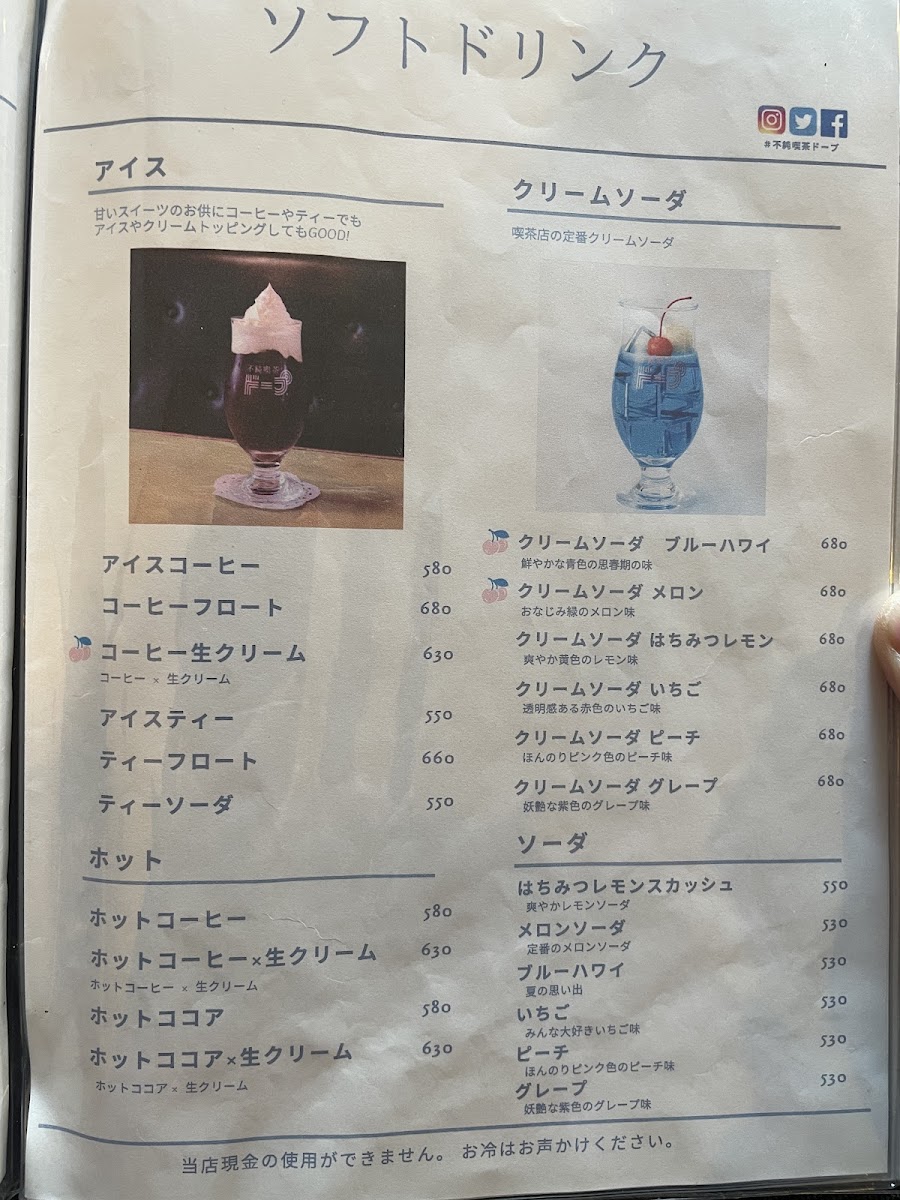 ソフトドリンク
#不純喫茶ドープ
アイス
甘いスイーツのお供にコーヒーやティーでも
アイスやクリームトッピングしてもGOOD!
不純喫茶
ドープ
アイスコーヒー 580
コーヒーフロート 680
コーヒー生クリーム 630
コーヒー × 生クリーム
アイスティー 550
ティーフロート 660
ティーソーダ 550
ホット
ホットコーヒー 580
ホットコーヒー×生クリーム 630
ホットコーヒー × 生クリーム
ホットココア 580
ホットココア×生クリーム 630
ホットココア × 生クリーム
クリームソーダ
喫茶店の定番クリームソーダ
ドープ
クリームソーダ ブルーハワイ 680
鮮やかな青色の思春期の味
クリームソーダ メロン 680
おなじみ緑のメロン味
クリームソーダ はちみつレモン 680
爽やか黄色のレモン味
クリームソーダ いちご 680
透明感ある赤色のいちご味
クリームソーダ ピーチ 680
ほんのりピンク色のピーチ味
クリームソーダ グレープ 680
妖艶な紫色のグレープ味
ソーダ
はちみつレモンスカッシュ 550
爽やかレモンソーダ
メロンソーダ 530
定番のメロンソーダ
ブルーハワイ 530
夏の思い出
いちご 530
みんな大好きいちご味
ピーチ 530
ほんのりピンク色のピーチ味
グレープ 530
妖艶な紫色のグレープ味
当店現金の使用ができません。 お冷はお声かけください。